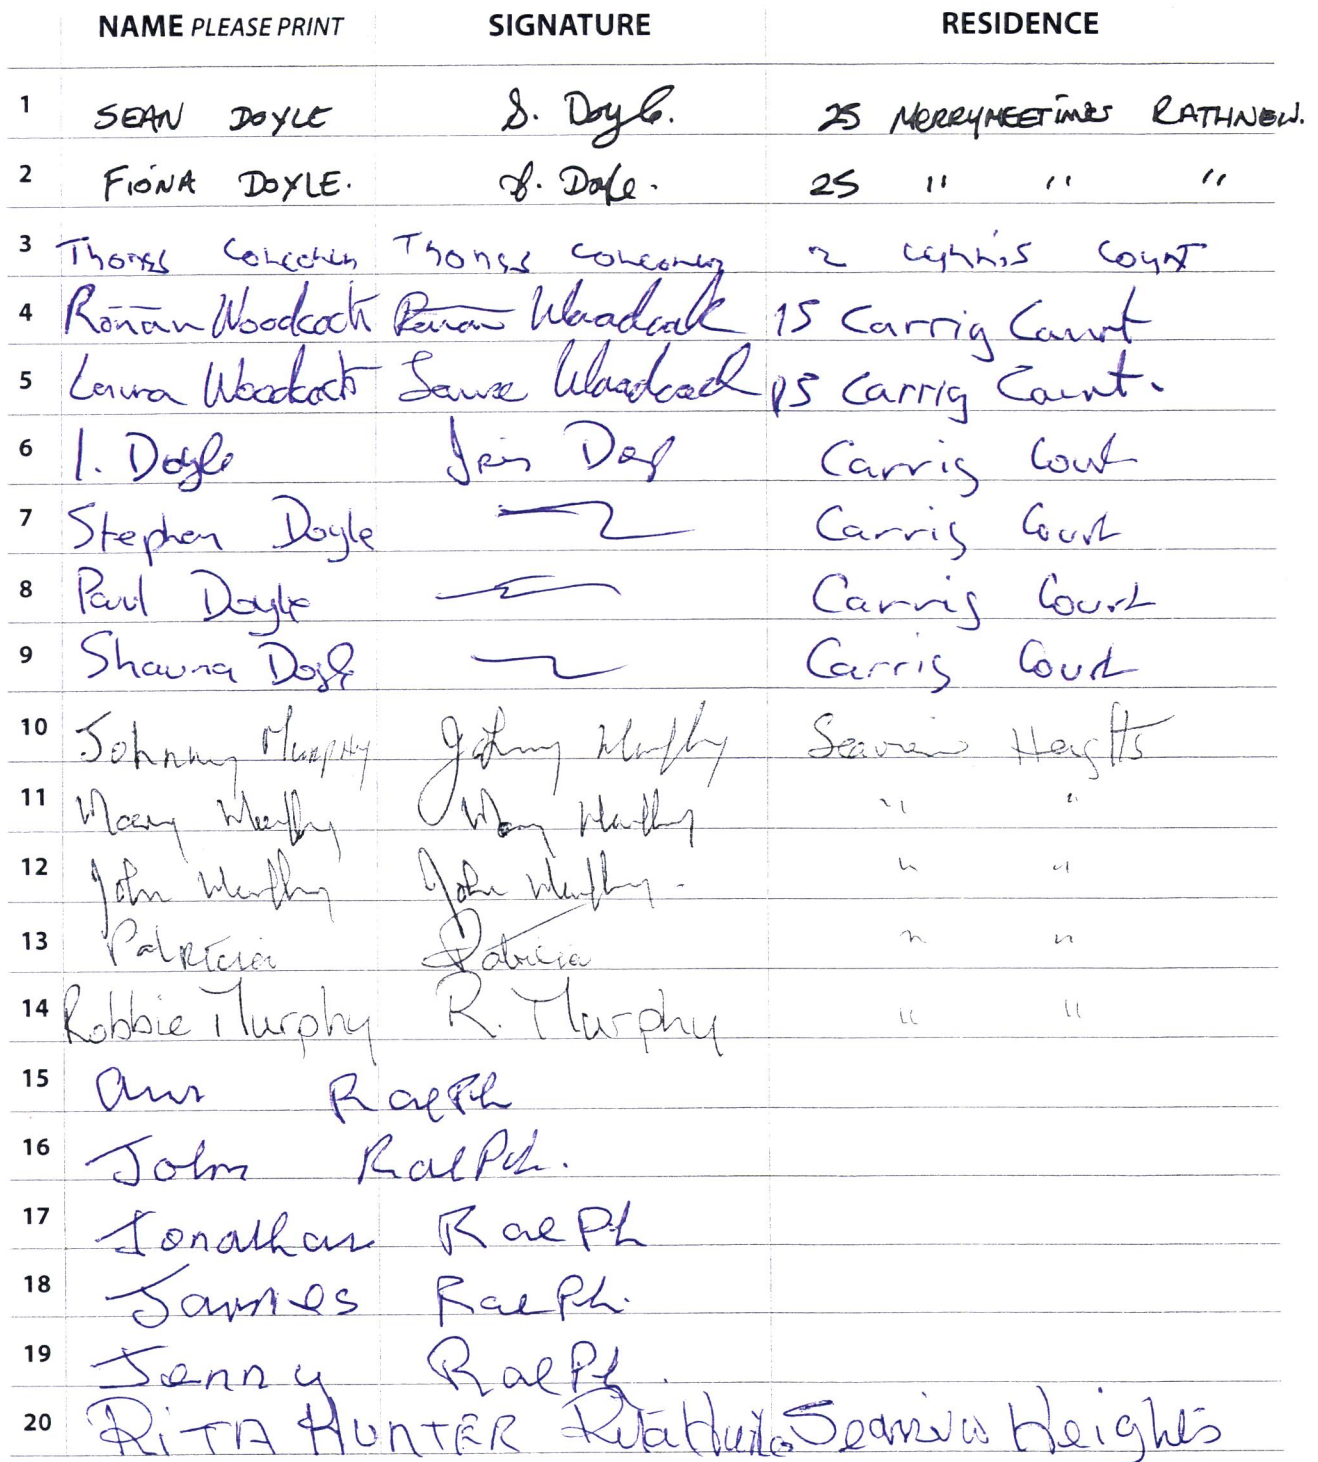 NAME PLEASE PRINT SIGNATURE RESIDENCE
1 SEAN DOYLE S. Doyle. 25 MERRYMEETINGS RATHNEW.
2 FIONA DOYLE. F. Doyle. 25 " " "
3 Thomas Thomas 2 Court
4 Ronan Woodcock Ronan Woodcock 15 Carrig Court
5 Laura Woodcock Laura Woodcock 15 Carrig Court.
6 I. Doyle Iris Doy Carrig Court
7 Stephen Doyle Carrig Court
8 Paul Doyle Carrig Court
9 Shauna Doyle Carrig Court
10 Johnny Murphy Johnny Murphy Seaview Heights
11 Mary Murphy Mary Murphy " "
12 John Murphy John Murphy. " "
13 Patricia Patricia " "
14 Robbie Murphy R. Murphy " "
15 Ann Ralph
16 John Ralph.
17 Jonathan Ralph
18 James Ralph.
19 Jenny Ralph.
20 RITA HUNTER Rita Hunter Seaview Heights